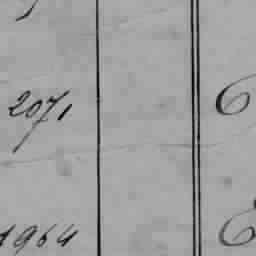 2071
1964